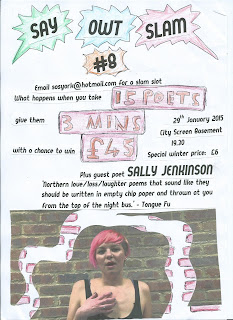 SAY OWT SLAM
#8
Email sasyork@hotmail.com for a slam slot
What happens when you take 15 POETS
give them 3 MINS
29th January 2015
City Screen Basement
19.30
with a chance to win £45
Special winter price: £6
Plus guest poet SALLY JENKINSON
'Northern love/loss/laughter poems that sound like they
should be written in empty chip paper and thrown at you
from the top of the night bus.' - Tongue Fu